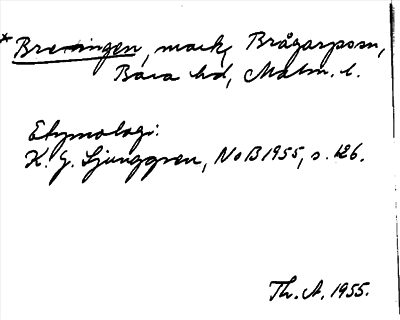 * Breningen, mark, Brågarpssn,
Bara hd, Malm. l.
Etymologi:
K. G. Ljunggren, NoB 1955, s. 126.
Th. A. 1955.